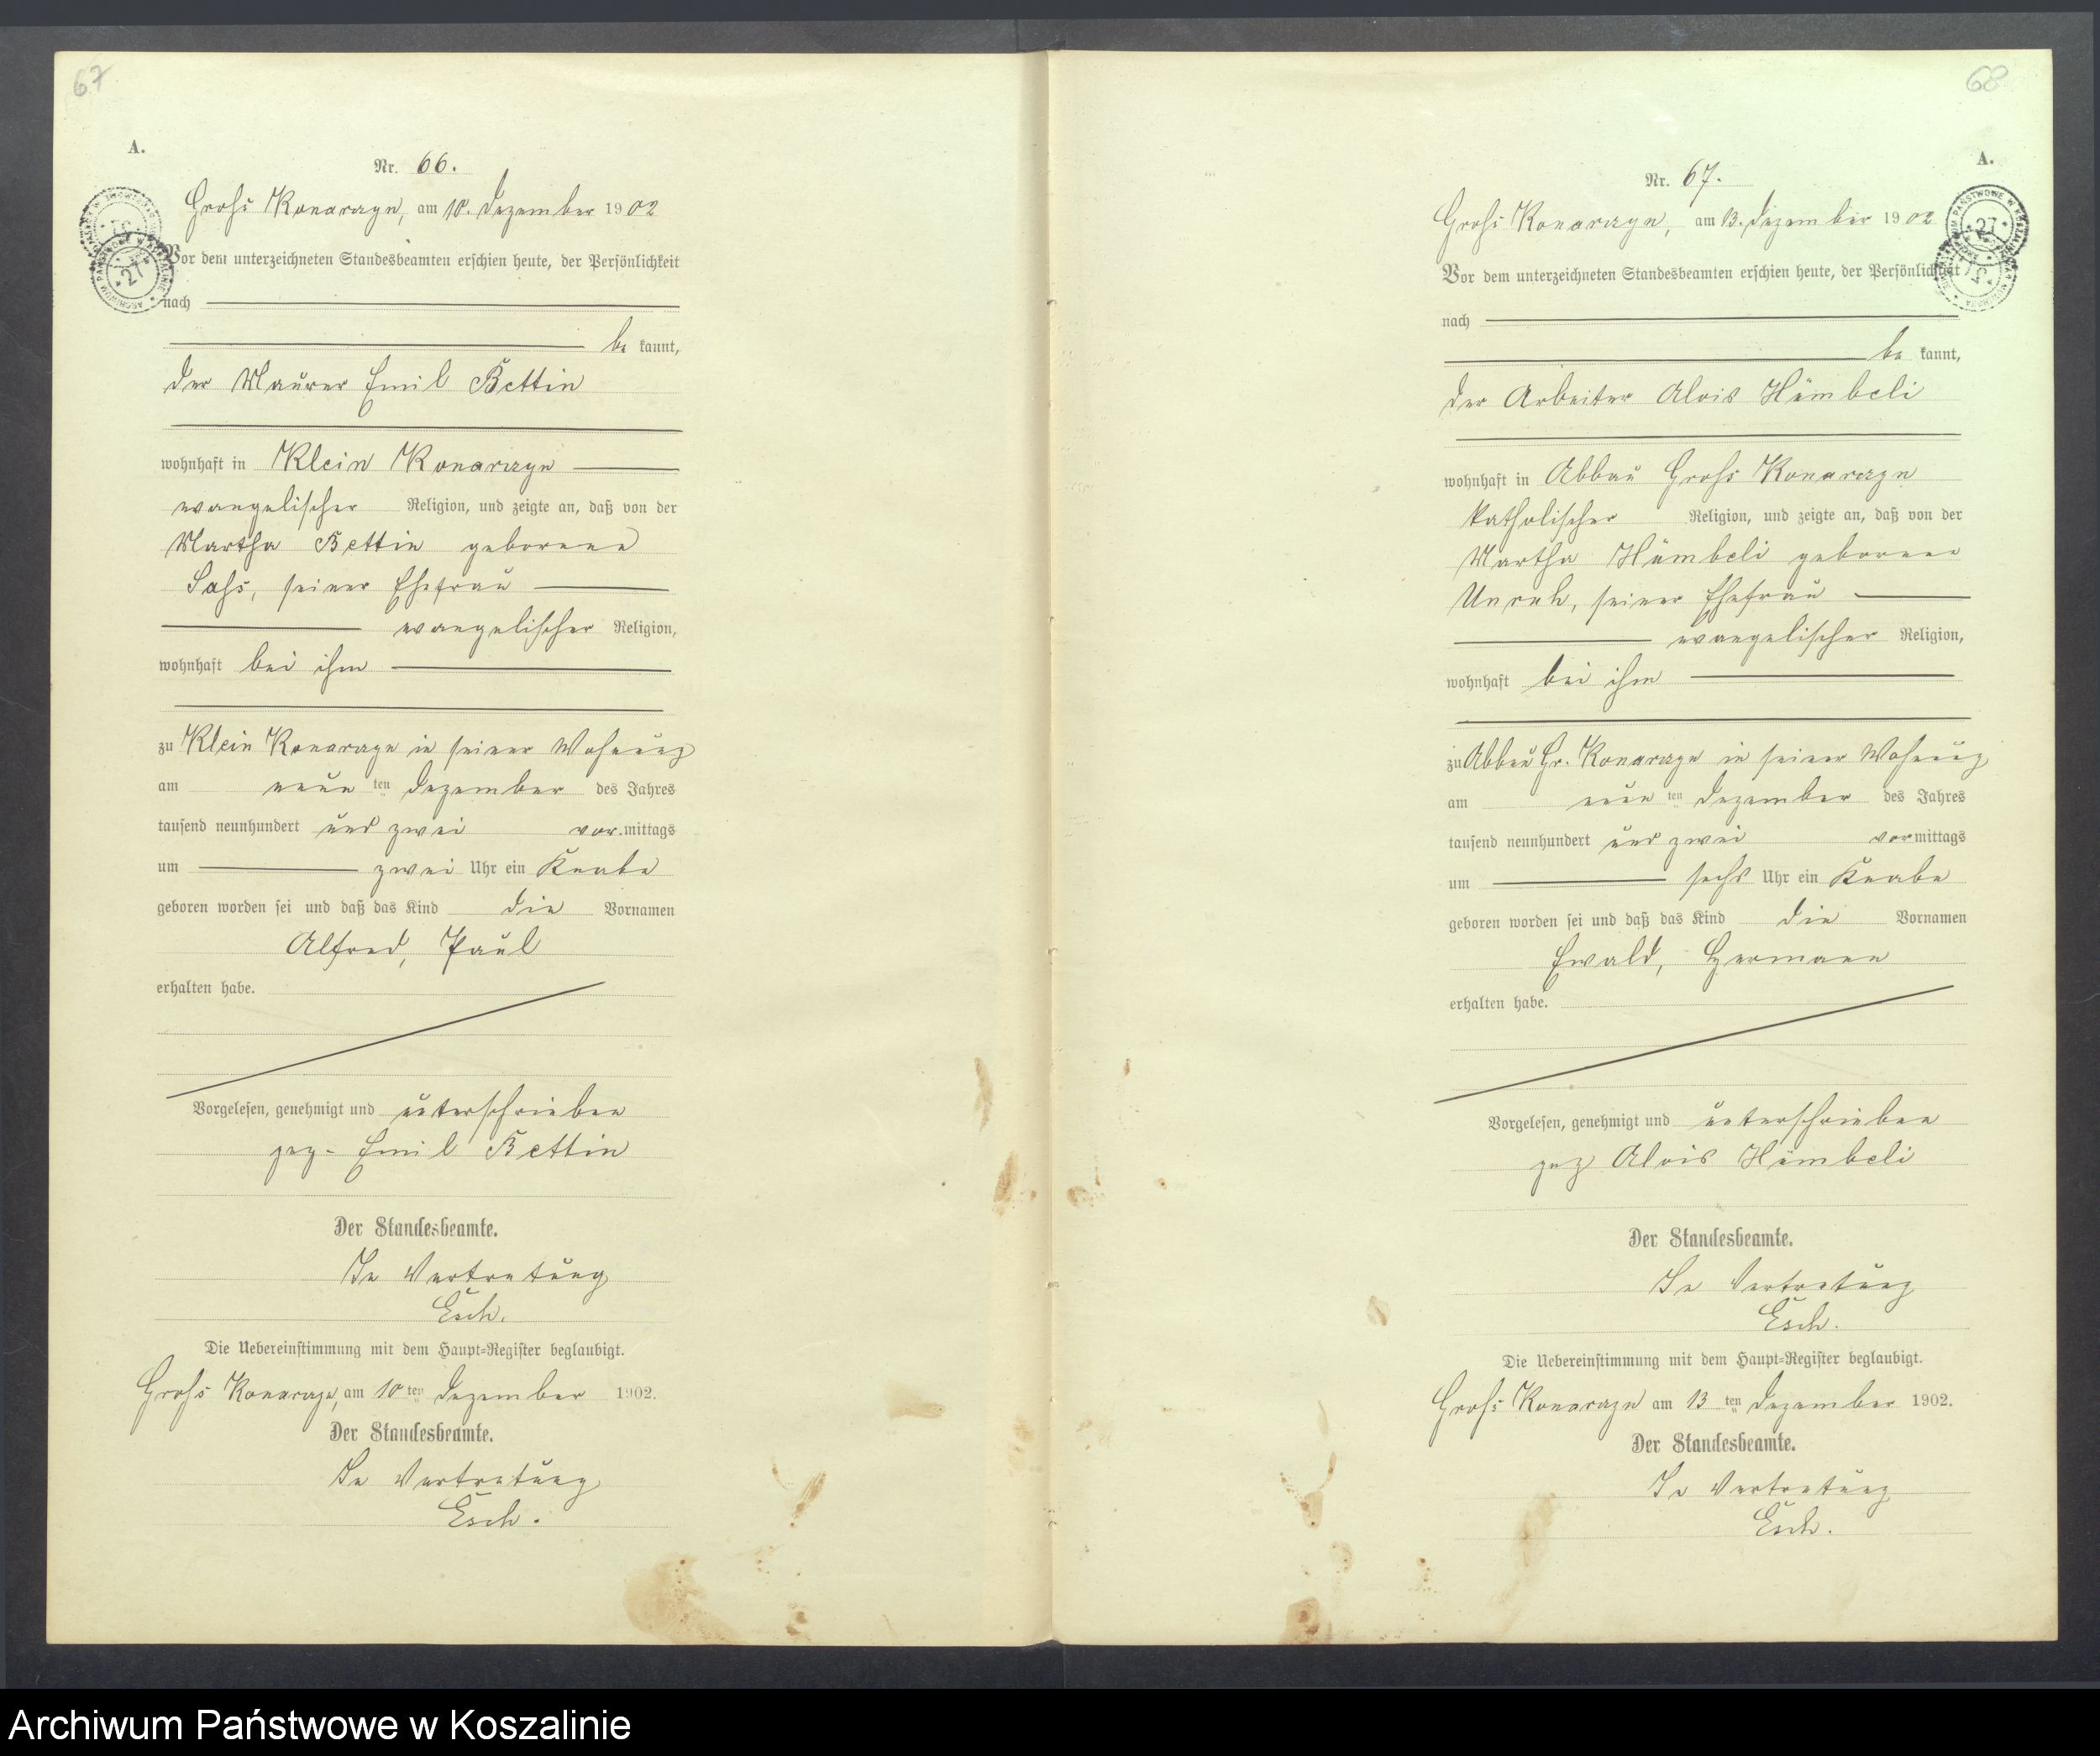 67
A.
Nr. 66.
Groß Konarzyn, am 10. Dezember 1902
Vor dem unterzeichneten Standesbeamten erschien heute, der Persönlichkeit
nach
be kannt,
der Maurer Emil Bettin
wohnhaft in Klein Konarzyn
evangelischer Religion, und zeigte an, daß von der
Martha Bettin geborene
Saß, seiner Ehefrau
evangelischer Religion,
wohnhaft bei ihm
zu Klein Konarzyn in seiner Wohnung
am neun ten Dezember des Jahres
tausend neunhundert und zwei vor.mittags
um zwei Uhr ein Knabe
geboren worden sei und daß das Kind die Vornamen
Alfred, Paul
erhalten habe.
Vorgelesen, genehmigt und unterschrieben
gez. Emil Bettin
Der Standesbeamte.
In Vertretung
Esch.
Die Uebereinstimmung mit dem Haupt=Register beglaubigt.
Groß Konarzyn, am 10 ten Dezember 1902.
Der Standesbeamte.
In Vertretung
Esch.
68
A.
Nr. 67.
Groß Konarzyn, am 13. Dezember 1902
Vor dem unterzeichneten Standesbeamten erschien heute, der Persönlichkeit
nach
be kannt,
der Arbeiter Alois Hümbeli
wohnhaft in Abbau Groß Konarzyn
katholischer Religion, und zeigte an, daß von der
Martha Hümbeli geborene
Unruh, seiner Ehefrau
evangelischer Religion,
wohnhaft bei ihm
zu Abbau Gr. Konarzyn in seiner Wohnung
am neun ten Dezember des Jahres
tausend neunhundert und zwei vormittags
um sechs Uhr ein Knabe
geboren worden sei und daß das Kind die Vornamen
Ewald, Hermann
erhalten habe.
Vorgelesen, genehmigt und unterschrieben
gez Alois Hümbeli
Der Standesbeamte.
In Vertretung
Esch.
Die Uebereinstimmung mit dem Haupt=Register beglaubigt.
Groß Konarzyn am 13 ten Dezember 1902.
Der Standesbeamte.
In Vertretung
Esch.
Archiwum Państwowe w Koszalinie